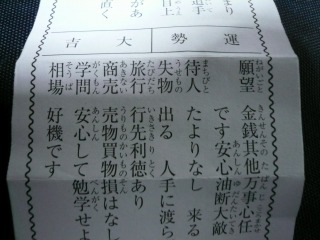 まり
があ
直く
運勢 大吉
願望 金銭其他万事心任
です安心油断大敵
待人 たよりなし 来る
失物 出る 人手に渡ら
旅行 行先利徳あり
商売 売物買物損はなし
学問 安心して勉学せよ
相場 好機です